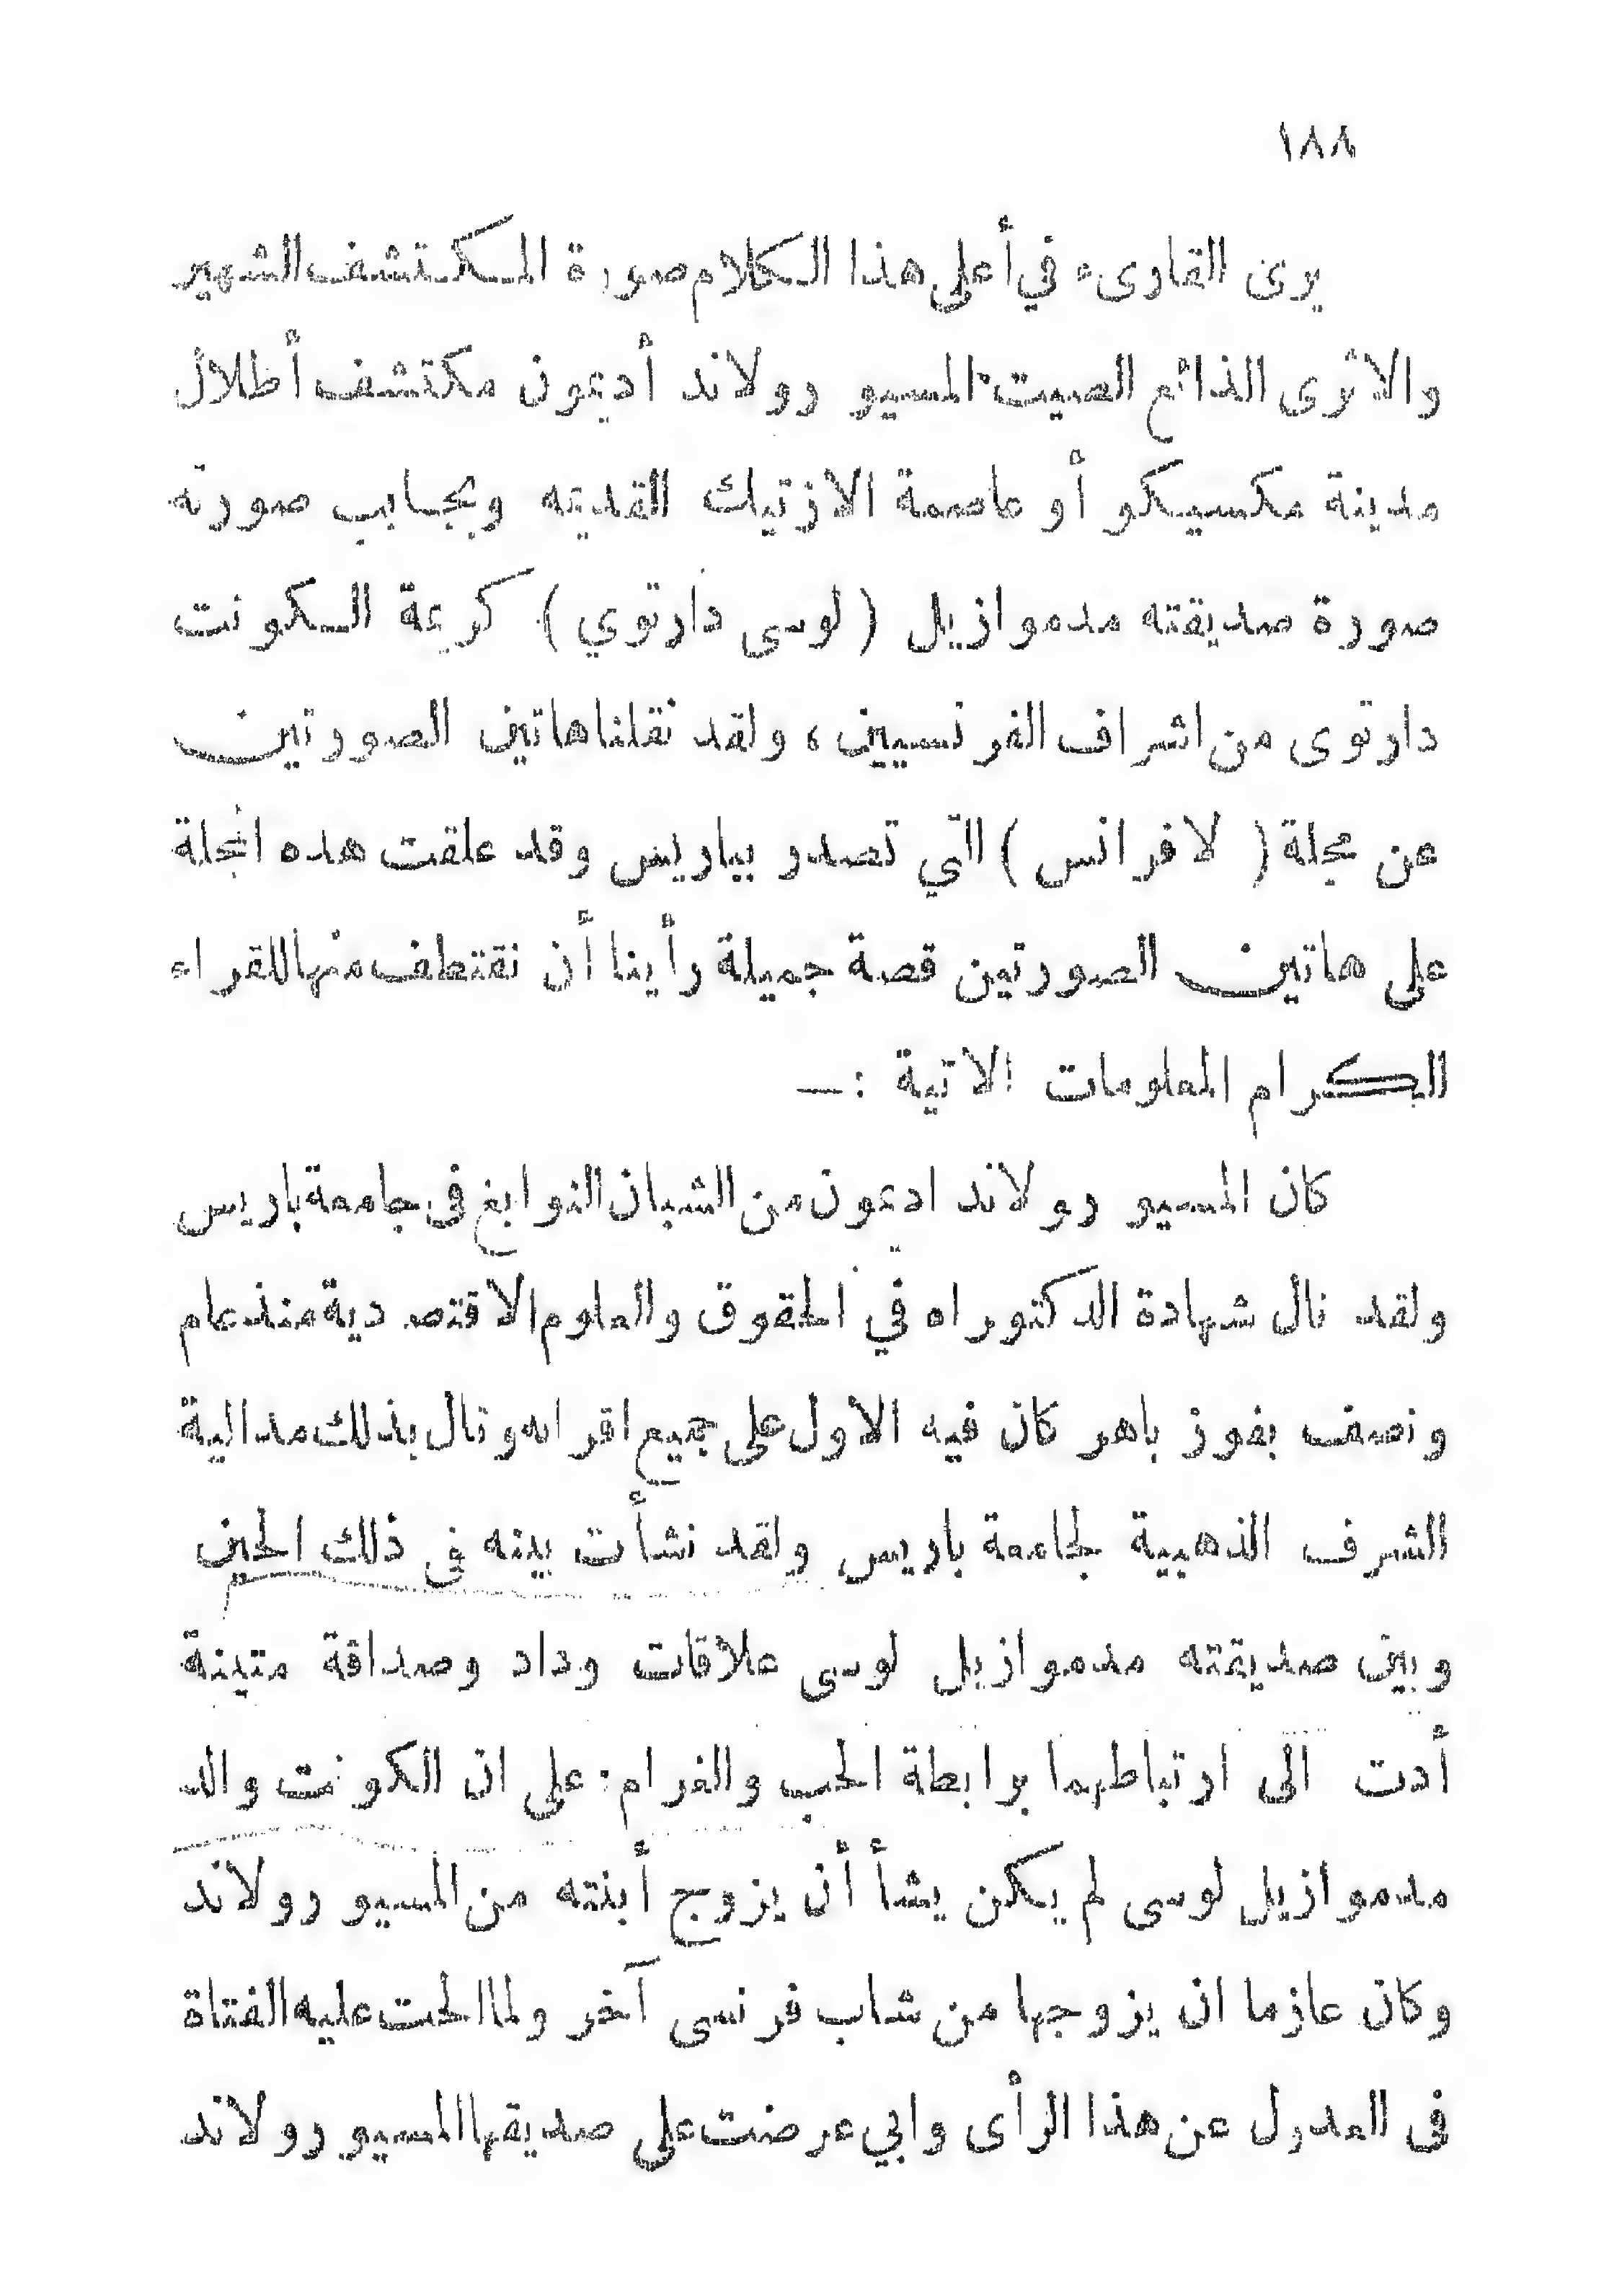 ١٨٨
يرى القارىء في أعلى هذا الكلام صورة المكتشف الشهير
والاثرى الذائع الصيت المسيو رولاند أدمون مكتشف أطلال
مدينة مكسيكو أو عاصمة الازتيك القديمه وبجانب صورته
صورة صديقته مدموازيل (لوسى دارتوي) كريمة الكونت
دارتوى من اشراف الفرنسيين، ولقد نقلنا هاتين الصورتين
عن مجلة (لافرانس) التي تصدر بباريس وقد علقت هذه المجلة
على هاتين الصورتين قصة جميلة رأينا أن نقتطف منها للقراء
الكرام المعلومات الاتية :—
كان المسيو رولاند ادمون من الشبان النوابغ فى جامعة باريس
ولقد نال شهادة الدكتوراه في الحقوق والعلوم الاقتصادية منذ عام
ونصف بفوز باهر كان فيه الاول على جميع اقرانه ونال بذلك مدالية
الشرف الذهبية لجامعة باريس ولقد نشأت بينه فى ذلك الحين
وبين صديقته مدموازيل لوسى علاقات وداد وصداقة متينة
أدت الى ارتباطهما برابطة الحب والغرام: على ان الكونت والد
مدموازيل لوسى لم يكن يشأ أن يزوج أبنته من المسيو رولاند
وكان عازما ان يزوجها من شاب فرنسى آخر ولما الحت عليه الفتاة
فى العدول عن هذا الرأى وابي عرضت على صديقها المسيو رولاند